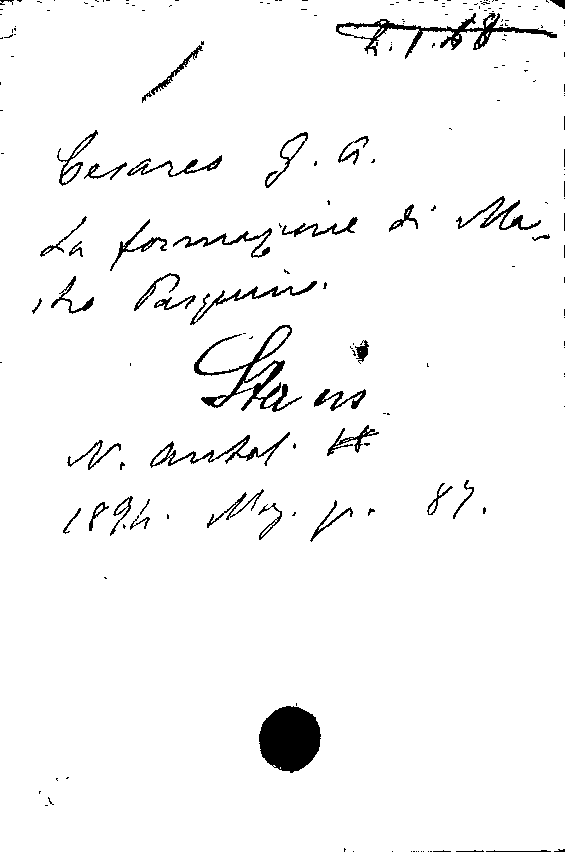 2.1.48
Cesareo G. A.
La formazione di Ma-
stro Pasquino.
N. Antol.
1894. Mag. p. 87.